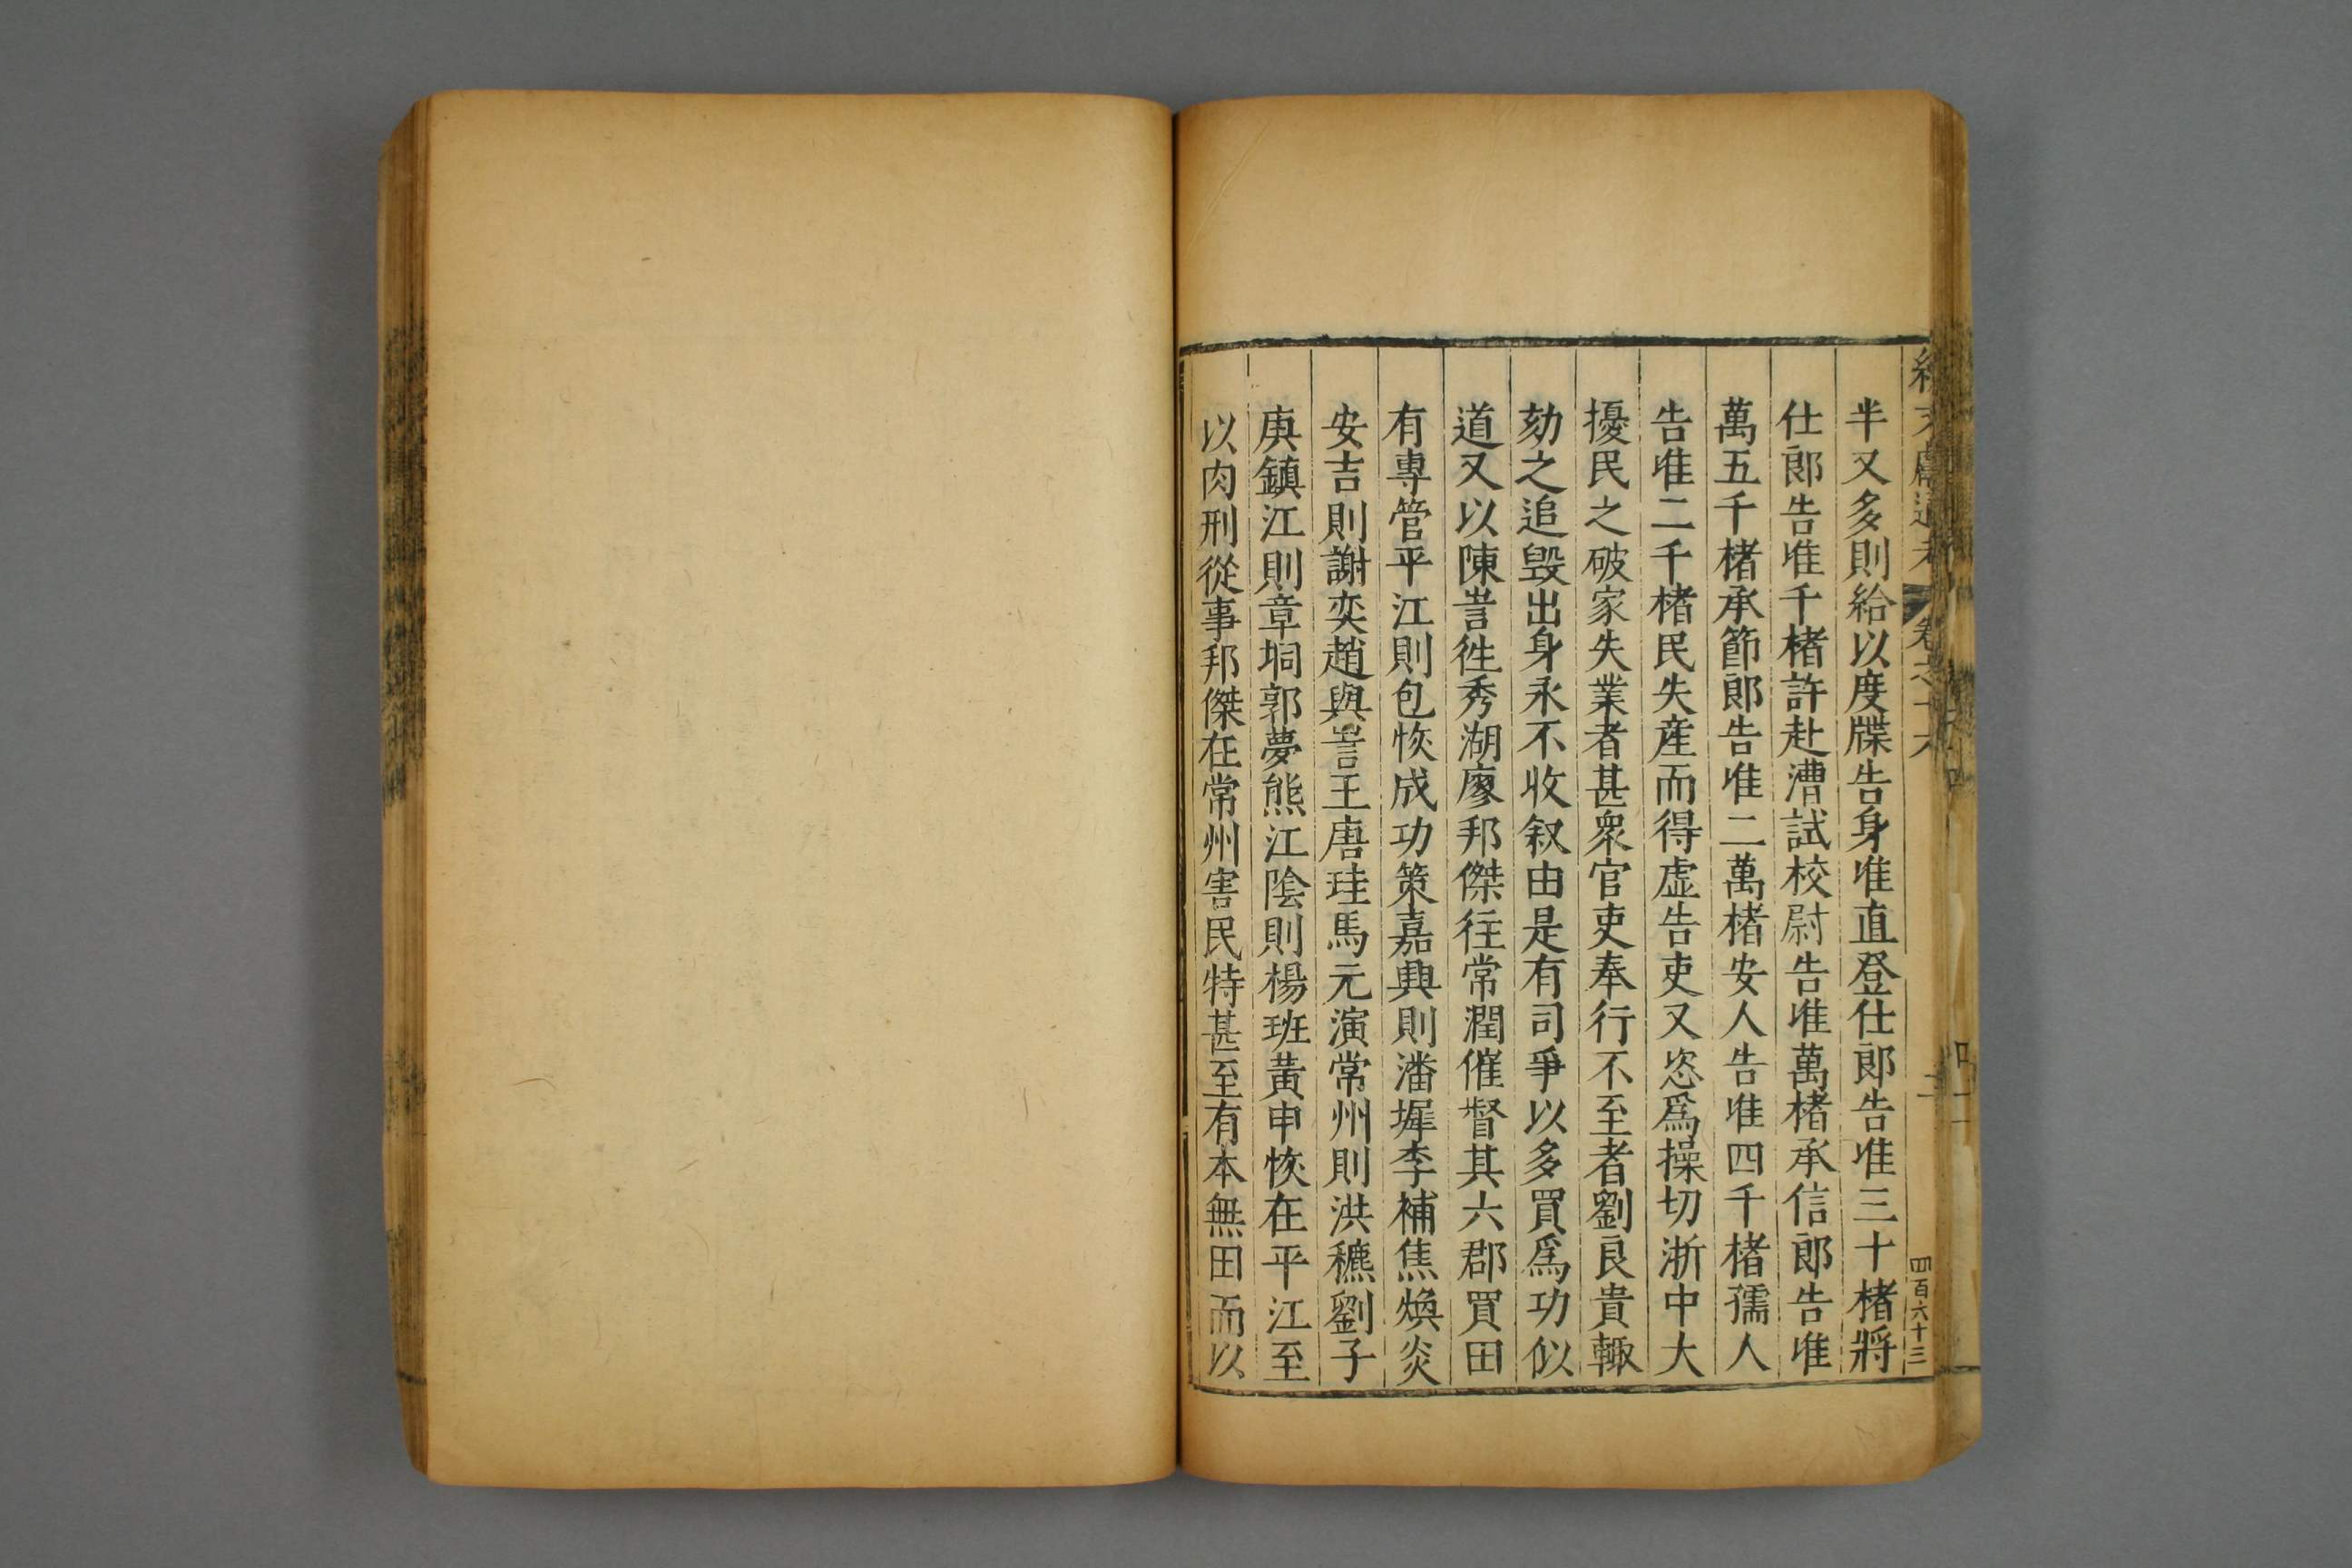 半又多則給以度牒告身准直登仕郎告准三十楮將
仕郎告准千楮許赴漕試校尉告准萬楮承信郎告准
萬五千楮承節郎告准二萬楮安人告准四千楮孺人
告准二千楮民失産而得虚告吏又恣爲操切浙中大
擾民之破家失業者甚衆官吏奉行不至者劉良貴輙
劾之追毁出身永不收叙由是有司爭以多買爲功似
道又以陳訔徃秀湖廖邦傑往常潤催督其六郡買田
有專管平江則包恢成功策嘉興則潘墀李補焦煥炎
安吉則謝奕趙與訔王唐珪馬元演常州則洪穮劉子
庚鎮江則章坰郭夢熊江陰則楊班黃申恢在平江至
以肉刑從事邦傑在常州害民特甚至有本無田而以
四百六十三